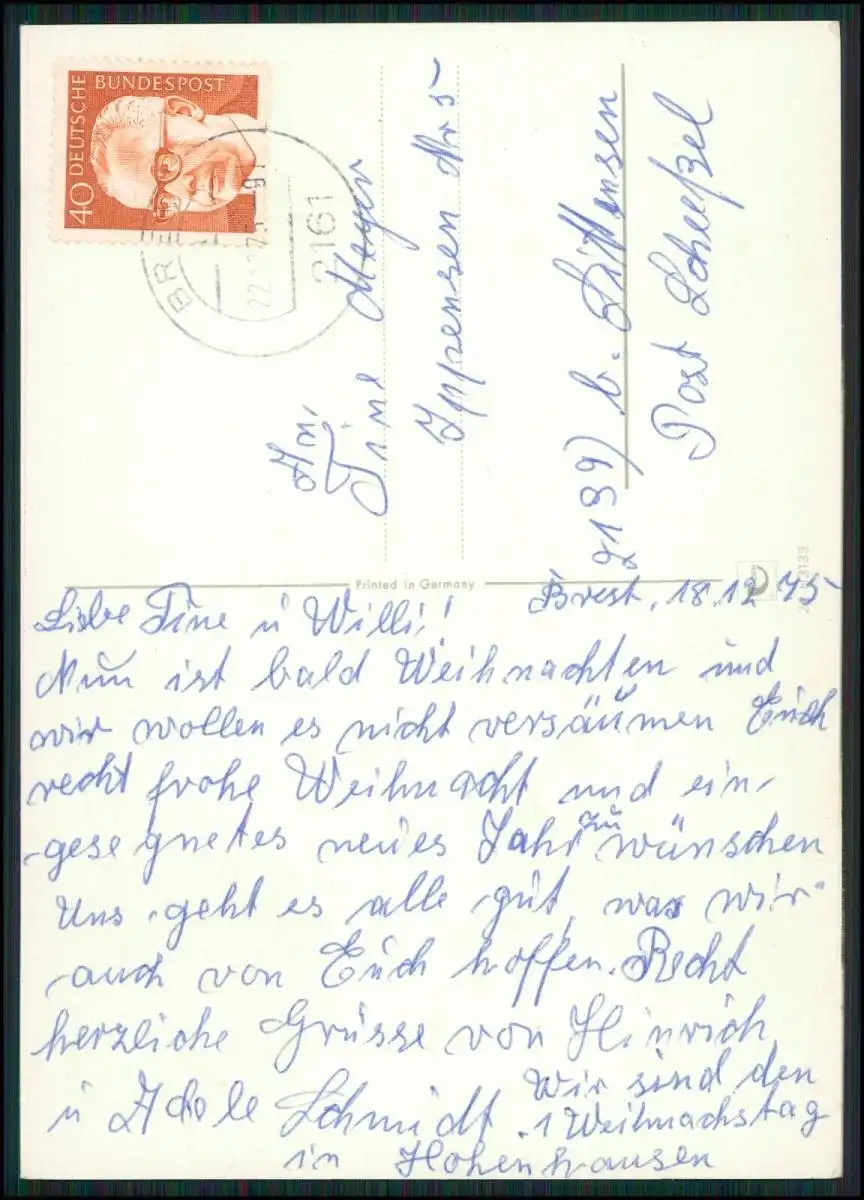 DEUTSCHE BUNDESPOST
40
2161
22.12.75
An
Tine Meyer
Ippensen Nr 5
2139) b. Sittensen
Post Scheeßel
Printed in Germany
Brest, 18.12.75
Liebe Tine u Willi!
Nun ist bald Weihnachten und
wir wollen es nicht versäumen Euch
recht frohe Weihnacht und ein
gesegnetes neues Jahr zu wünschen
Uns geht es alle gut, was wir
auch von Euch hoffen. Recht
herzliche Grüsse von Hinrich
u Adele Schmidt. Wir sind den
1 Weihnachstag
in Hohenhausen